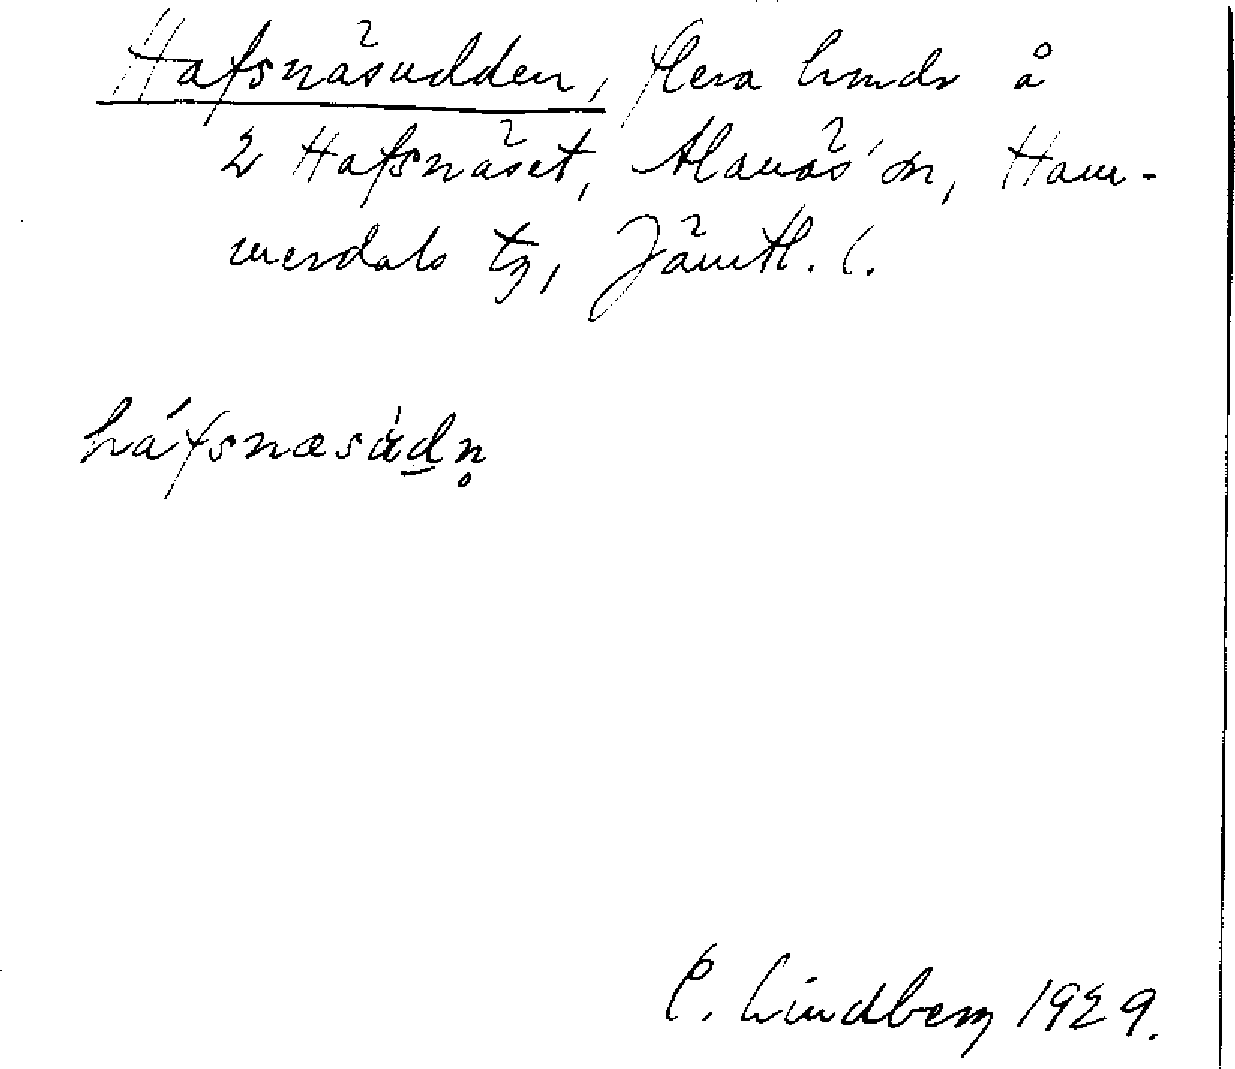 Hafsnäsudden, flera lindr å
2 Hafsnäset, Alanäs' sn, Ham-
merdals tg, Jämtl. l.
háfsnæsàdn̥
C. Lindberg 1929.